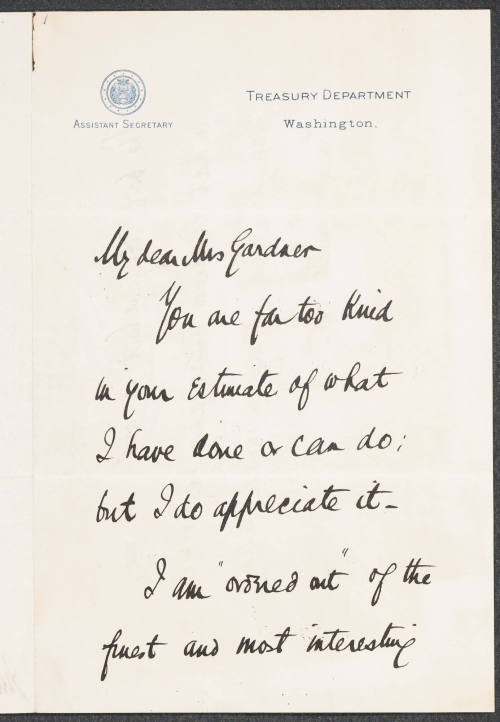 ASSISTANT SECRETARY
TREASURY DEPARTMENT
Washington.
My dear Mrs Gardner
You are far too kind
in your estimate of what
I have done or can do;
but I do appreciate it—
I am "ordered out" of the
finest and most interesting